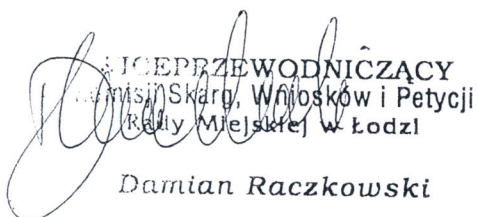 WICEPRZEWODNICZĄCY
Komisji Skarg, Wniosków i Petycji
Rady Miejskiej w Łodzi
Damian Raczkowski